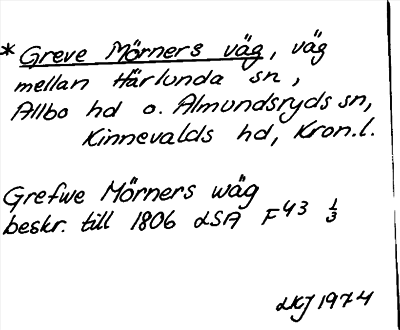 * Greve Mörners väg, väg
mellan Härlunda sn,
Allbo hd o. Almundsryds sn,
Kinnevalds hd, Kron.l.
Grefwe Mörners wäg
beskr. till 1806 LSA F43 1/3
LKJ 1974